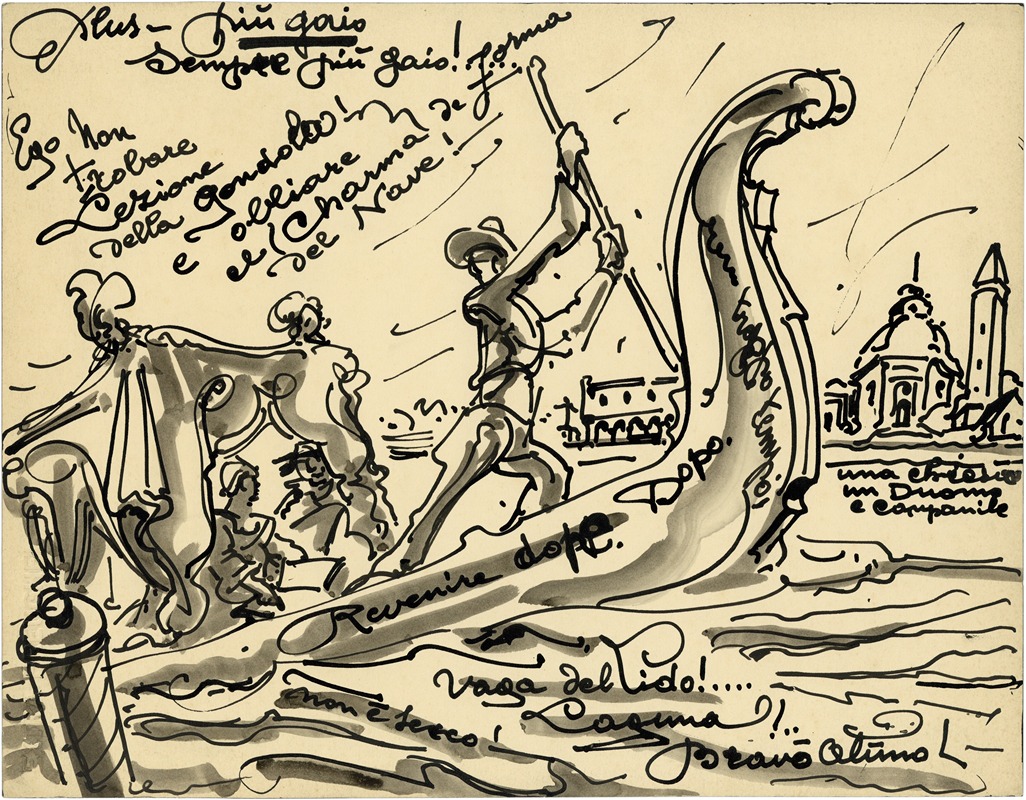 Plus - più gaio
Sempre più gaio!
Ego Non
trobare
Lezione
della gondola!
e obliare
el Charma de forma
del Nave!
Dopo.
Revenire dopo.
una chiesa
un Duomo
e campanile
Vaga del Lido!....
non è secco!
Laguna!!..
Bravo